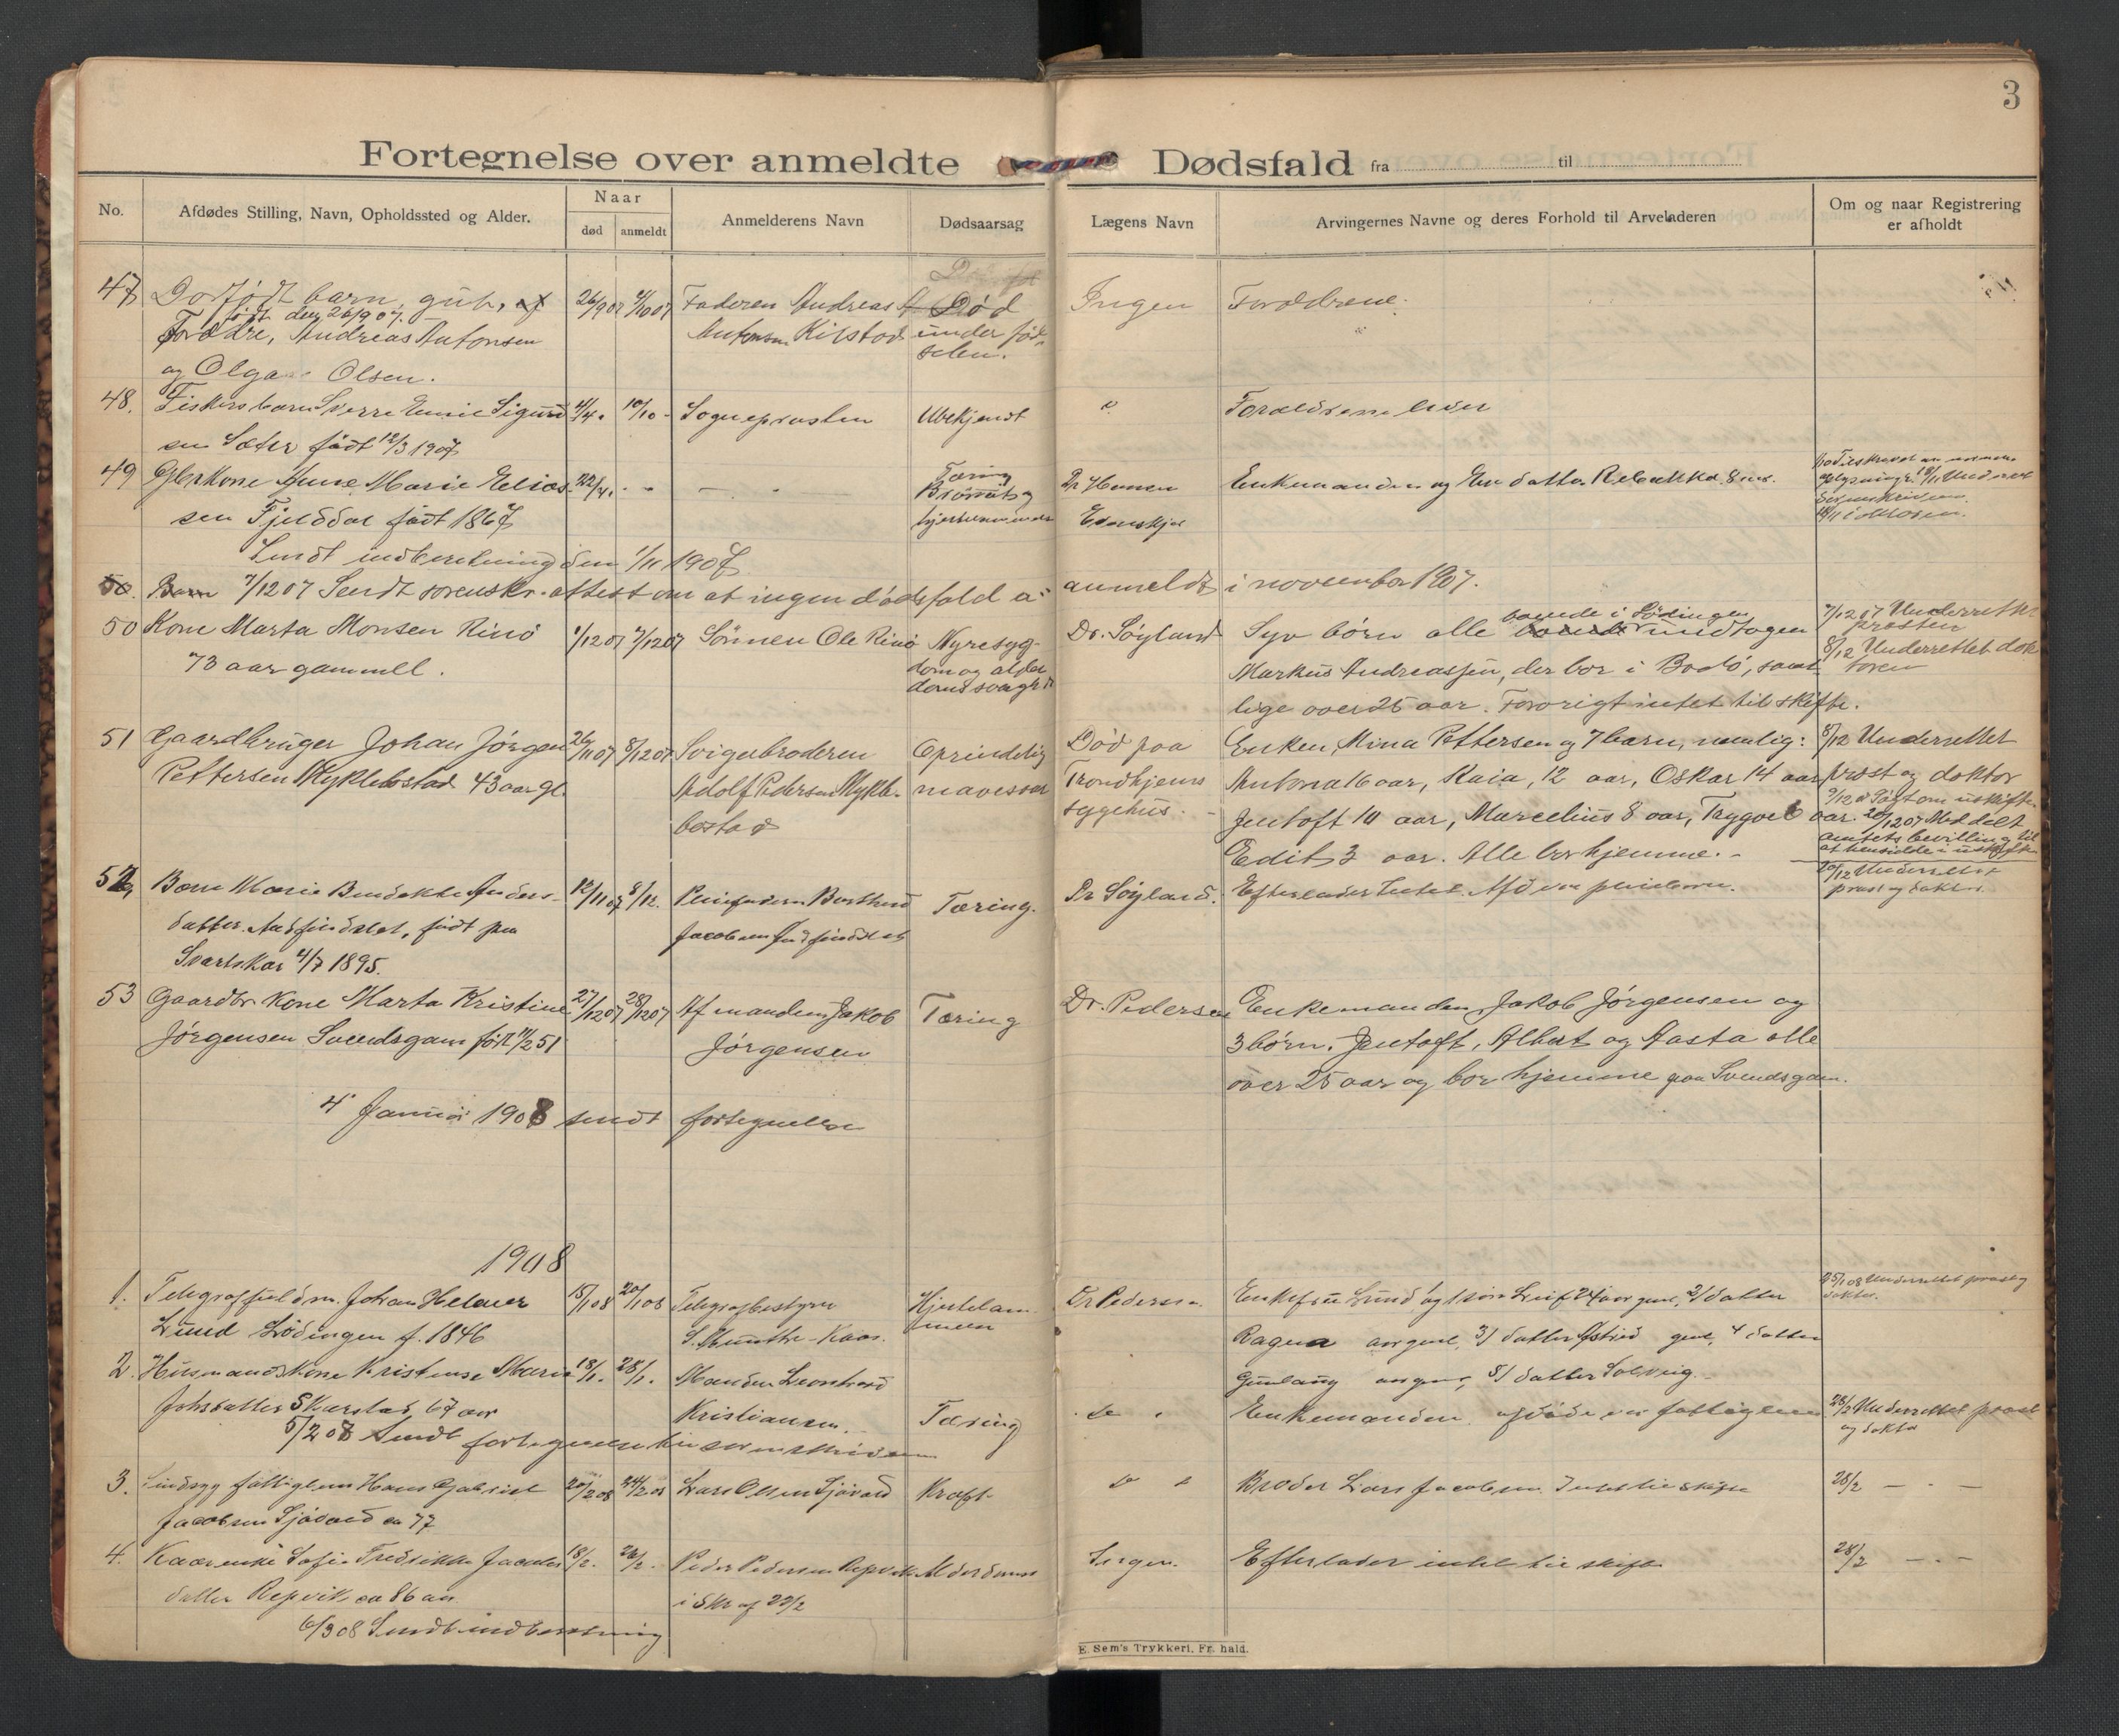 3
Fortegnelse over anmeldte Dødsfald fra til
No.
Afdødes Stilling, Navn, Opholdssted og Alder.
Naar
død
anmeldt
Anmelderens Navn
Dødsaarsag
Lægens Navn
Arvingernes Navne og deres Forhold til Arveladeren
Om og naar Registrering
er afholdt
47 Dødfødt barn, gut, af 26/9 07 4/10 07 Faderen Andreas Død Ingen Forældrene.
født den 26/9 07.
Forældre, Andreas Antonsen Antonsen Kilstad under fød-
selen.
og Olga Olsen.
48. Fiskers barn Sverre Emil Sigurd 4/4. 10/10 - Sognepræsten Ubekjendt Forældrene lever
sen Sæter født 12/3 1907
49 Gbrkone Anne Marie Elias 22/4. - - — Tæring Dr Hansen Enkemanden og En datter Rebekka 8 aar.
sen Fjelddal født 1867 Evenskjer
Sendt indberetning den 1/11 1907
50. Barn 7/12 07 Sendt sorenskr. attest om at ingen dødsfald er anmeldt i november 1907.
50 Kone Marta Monsen Rinø 1/12 07 7/12 07 Sønnen Ole Rinø Nyresyg- Dr. Søyland Syv børn alle boende i Lødingen undtagen
73 aar gammel. dom og alder
domssvaghed
Markus Andreassen, der bor i Bodø, samt
lige over 25 aar. Forørigt intet til skifte.
7/12 07 Underrettet
prosten
8/12 Underrettet dok
toren
51 Gaardbruger Johan Jørgen 26/11 07 8/12 07 Svigerbroderen Oprindelig Død paa Enken, Mina Pettersen og 7 børn, nemlig: 8/12 Underrettet
Pettersen Myklebostad 43 aar gl. Adolf Pedersen Mykle- mavesaar Trondhjems Antona 16 aar, Kaia, 12 aar, Oskar 14 aar prost og doktor
bostad sygehus. Jentoft 10 aar, Marcelius 8 aar, Trygve 6 aar.
Edit 3 aar. Alle bor hjemme.
20/12 07 Meddelt
amtets bevilling til
at hensidde i uskifte
52 Barn Marie Bendikte Anders- 12/11 07 8/12. Pleiefaderen Berthed Tæring. Dr Søyland. Efterlader Intet. Afd var pleiebarn.
datter født paa Jacobsen
Svartskar 4/7 1895.
10/12 Underrettet
prost og doktor.
53 Gaardbr. kone Marta Kristine 27/12 07 28/12 07 Af manden Jakob Tæring Dr. Pedersen Enkemanden, Jakob Jørgensen og
Jørgensen Svendsgam født 11/2 51 Jørgensen 3 børn. Jentoft, Albert og Aasta alle
over 25 aar og bor hjemme paa Svendsgam.
4 Januar 1908 sendt fortegnelse
1908
1. Johan Helmer 15/1 08 20/1 08 Telegrafbestyrer Hjertelam- Dr Pedersen. Enkefru Lund, og 1 søn Leif 24 aar gml, 2/ datter
melse
Lund Lødingen f. 1846 S. Munthe-Kaas.
Ragna aar gml, 3/ datter Astrid gml, 4 datter
Gunlaug aar gml, 5/ datter Solveig.
25/1 08 Underrettet prost og
doktor.
2. Husmandskone Kristense Marie 18/1. 28/1. Manden Leonhard
Johsdatter Skarstad 67 aar Kristiansen. Tæring Enkemanden. afdøde var fattiglem 28/2 Underrettet prost
og doktor
5/2 08 Sendt fortegnelse til sorenskriveren
3. Sindssyg fattiglem Hans Gabriel 20/2 08 24/2 08 Lars Olsen Sjåvard Kræft Broder Lars Jacobsen. Intet til skifte 28/2 — - —
Jacobsen Sjåvard ca 77
4. Kaarenke Sofie Fredrikke Jacobs 18/2. 26/2. Peder Pedersen Repvik Alderdoms Ingen. Efterlader intet til skifte 28/2 — - —
datter Repvik ca 86 aar. i Skr af 22/2
6/3 08 Sendt indberetning
E. Sem's Trykkeri, Fr.hald.